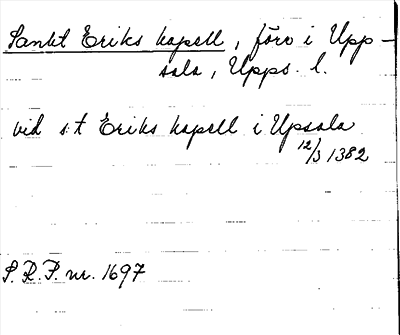 Sankt Eriks kapell, förv i Upp-
sala, Upps. l.
vid s:t Eriks kapell i Upsala
12/3 1382
S.R.P. nr. 1697